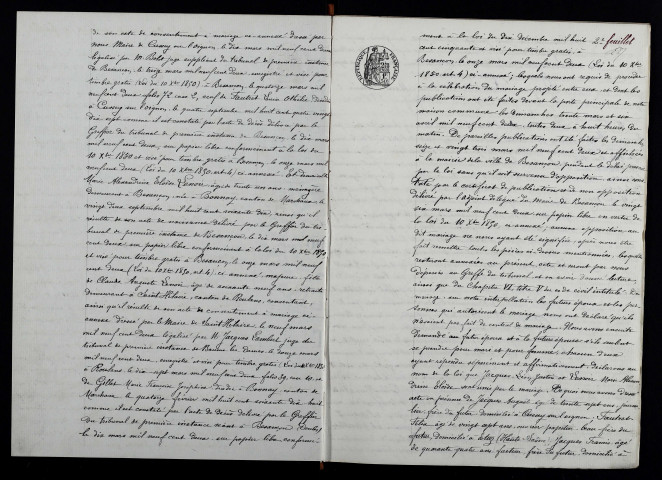 de son acte de consentement à mariage ci-annexé dressé par
nous Maire de Cussey sur l'ognon, le dix mars mil neuf cent deux
légalisé par M. juge suppléant du tribunal de première instance
de Besançon, le treize mars mil neuf cent deux enregistré et visé pour
timbre gratis (loi du 10 Xbre 1850) à Besançon, le quatorze mars mil
neuf cent deux folio 72 case 2, veuf de
à Cussey sur l'ognon, le quatre septembre mil huit cent quatre vingt
dix sept comme il est constaté par l'acte de décès délivré par le
Greffier du tribunal de première instance de Besançon, le dix mars
mil neuf cent deux, sur papier libre conformément à la loi du
10 Xbre 1850 et visé pour timbre gratis à Besançon, le onze mars mil
neuf cent deux (loi du 10 Xbre 1850, art 4) ci annexé. Et demoiselle
Marie Alexandrine Elodie âgée de trente ans, ménagère
demeurant à Besançon, née à Bonnay, canton de Marchaux, le
vingt deux septembre mil huit cent soixante dix, ainsi qu'il
résulte de son acte de naissance délivré par le Greffier du tri-
bunal de première instance de Besançon le dix mars mil neuf
cent deux sur papier libre conformément à la loi du 10 Xbre 1850
et visé pour timbre gratis à Besançon, le onze mars mil neuf
cent deux (loi du 10 Xbre 1850, art 4) ci-annexé, majeure, fille
de Claude Auguste âgé de soixante neuf ans, retraité
demeurant à Saint Hilaire, canton de Roulans, consentant,
ainsi qu'il résulte de son acte de consentement à mariage ci-
annexé dressé par le Maire de Saint Hilaire, le neuf mars
mil neuf cent deux, légalisé par M. Jacques juge du
tribunal de première instance de Baume les Dames le douze mars
mil neuf cent deux, enregistré et visé pour timbre gratis (loi du 10 Xbre 1850)
à Roulans le dix sept mars mil neuf cent deux folio 39, case 10, et de
Marie Françoise Joséphine décédée à Bonnay, canton de
Marchaux, le quatorze février mil huit cent soixante dix huit
comme il est constaté par l'acte de décès délivré par le Greffier
du tribunal de première instance séant à Besançon (Doubs)
le dix mars mil neuf cent deux sur papier libre conformé-
2e feuillet
ment à la loi du dix décembre mil huit
cent cinquante et visé pour timbre gratis, à
Besançon, le onze mars mil neuf cent deux (loi du 10 Xbre
1850 art 4) ci-annexé; lesquels nous ont requis de procéder
à la célébration du mariage projeté entre eux et dont les
publications ont été faites devant la porte principale de notre
maison commune les dimanches trente mars et six
avril mil neuf cent deux, toutes deux à huit heures du
matin. De pareilles publications ont été faites les dimanches
seize et vingt trois mars mil neuf cent deux et affichées
à la mairie de la ville de Besançon pendant le délai prescrit
par la loi sans qu'il soit survenu d'opposition ainsi que
l'atteste par le certificat de publications et de non opposition
délivré par l'adjoint délégué du Maire de Besançon le vingt
six mars mil neuf cent deux sur papier libre en vertu de
la loi du 10 Xbre 1850, ci-annexé; aucune opposition au
dit mariage ne nous ayant été signifiée; après nous être
fait remettre toutes les pièces ci-dessus mentionnées, lesquelles
resteront annexées au présent acte et seront par nous
déposées au Greffe du tribunal et en avoir donné lecture,
ainsi que du Chapitre VI, titre V du code civil intitulé: Du
mariage, sur notre interpellation les futurs époux et les per-
sonnes qui autorisent le mariage nous ont déclaré qu'ils
n'avaient pas fait de contrat de mariage. Nous avons ensuite
demandé au futur époux et à la future épouse s'ils veulent
se prendre pour mari et pour femme, chacun d'eux
ayant répondu séparément et affirmativement déclarons au
nom de la loi que Jacques et Marie Alexan-
drine Elodie sont unis par le mariage. De quoi nous avons dressé
acte en présence de Jacques August, âgé de trente sept ans,
frère du futur domicilié à Cussey sur l'ognon,
âgé de vingt sept ans, ouvrier papetier, beau-frère du
futur, domicilié à (Haute Saône), Jacques Francis, âgé
de quarante quatre ans, facteur, frère du futur, domicilié à